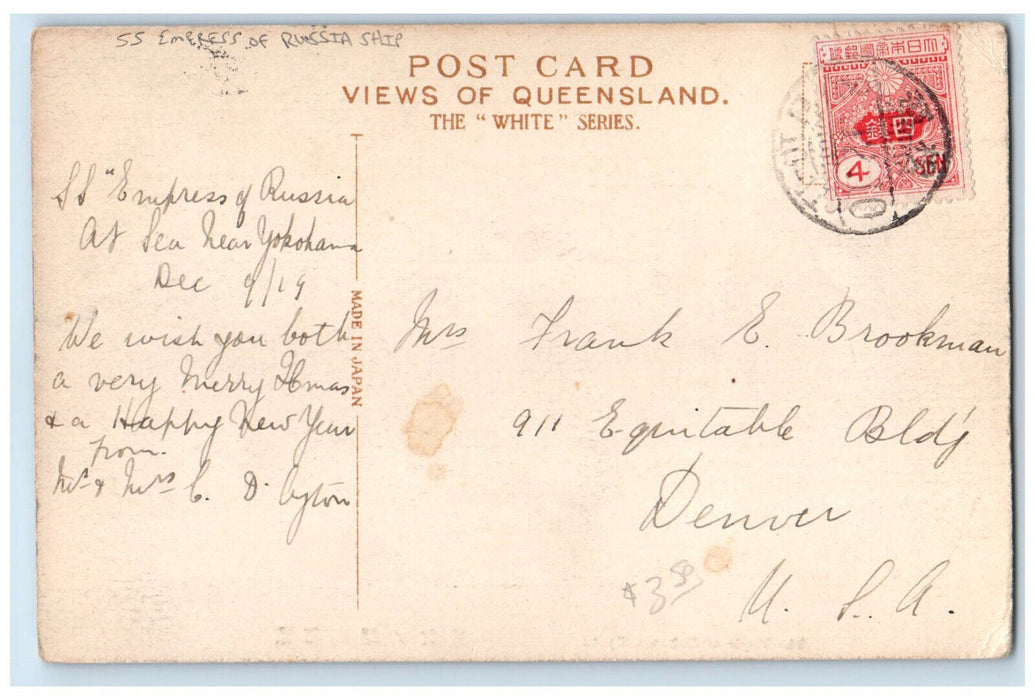 SS EMPRESS OF RUSSIA SHIP
POST CARD
VIEWS OF QUEENSLAND.
THE "WHITE" SERIES.
大日本帝國郵便
四銭
4 SEN
SS "Empress of Russia
At Sea Near Yokohama
Dec 9/19
We wish you both
a very Merry Xmas
& a Happy New Year
from.
Mr & Mrs C. D. Ayton
MADE IN JAPAN
Mrs Frank E. Brookman
911 Equitable Bld'g
Denver
U. S. A.
$3.50